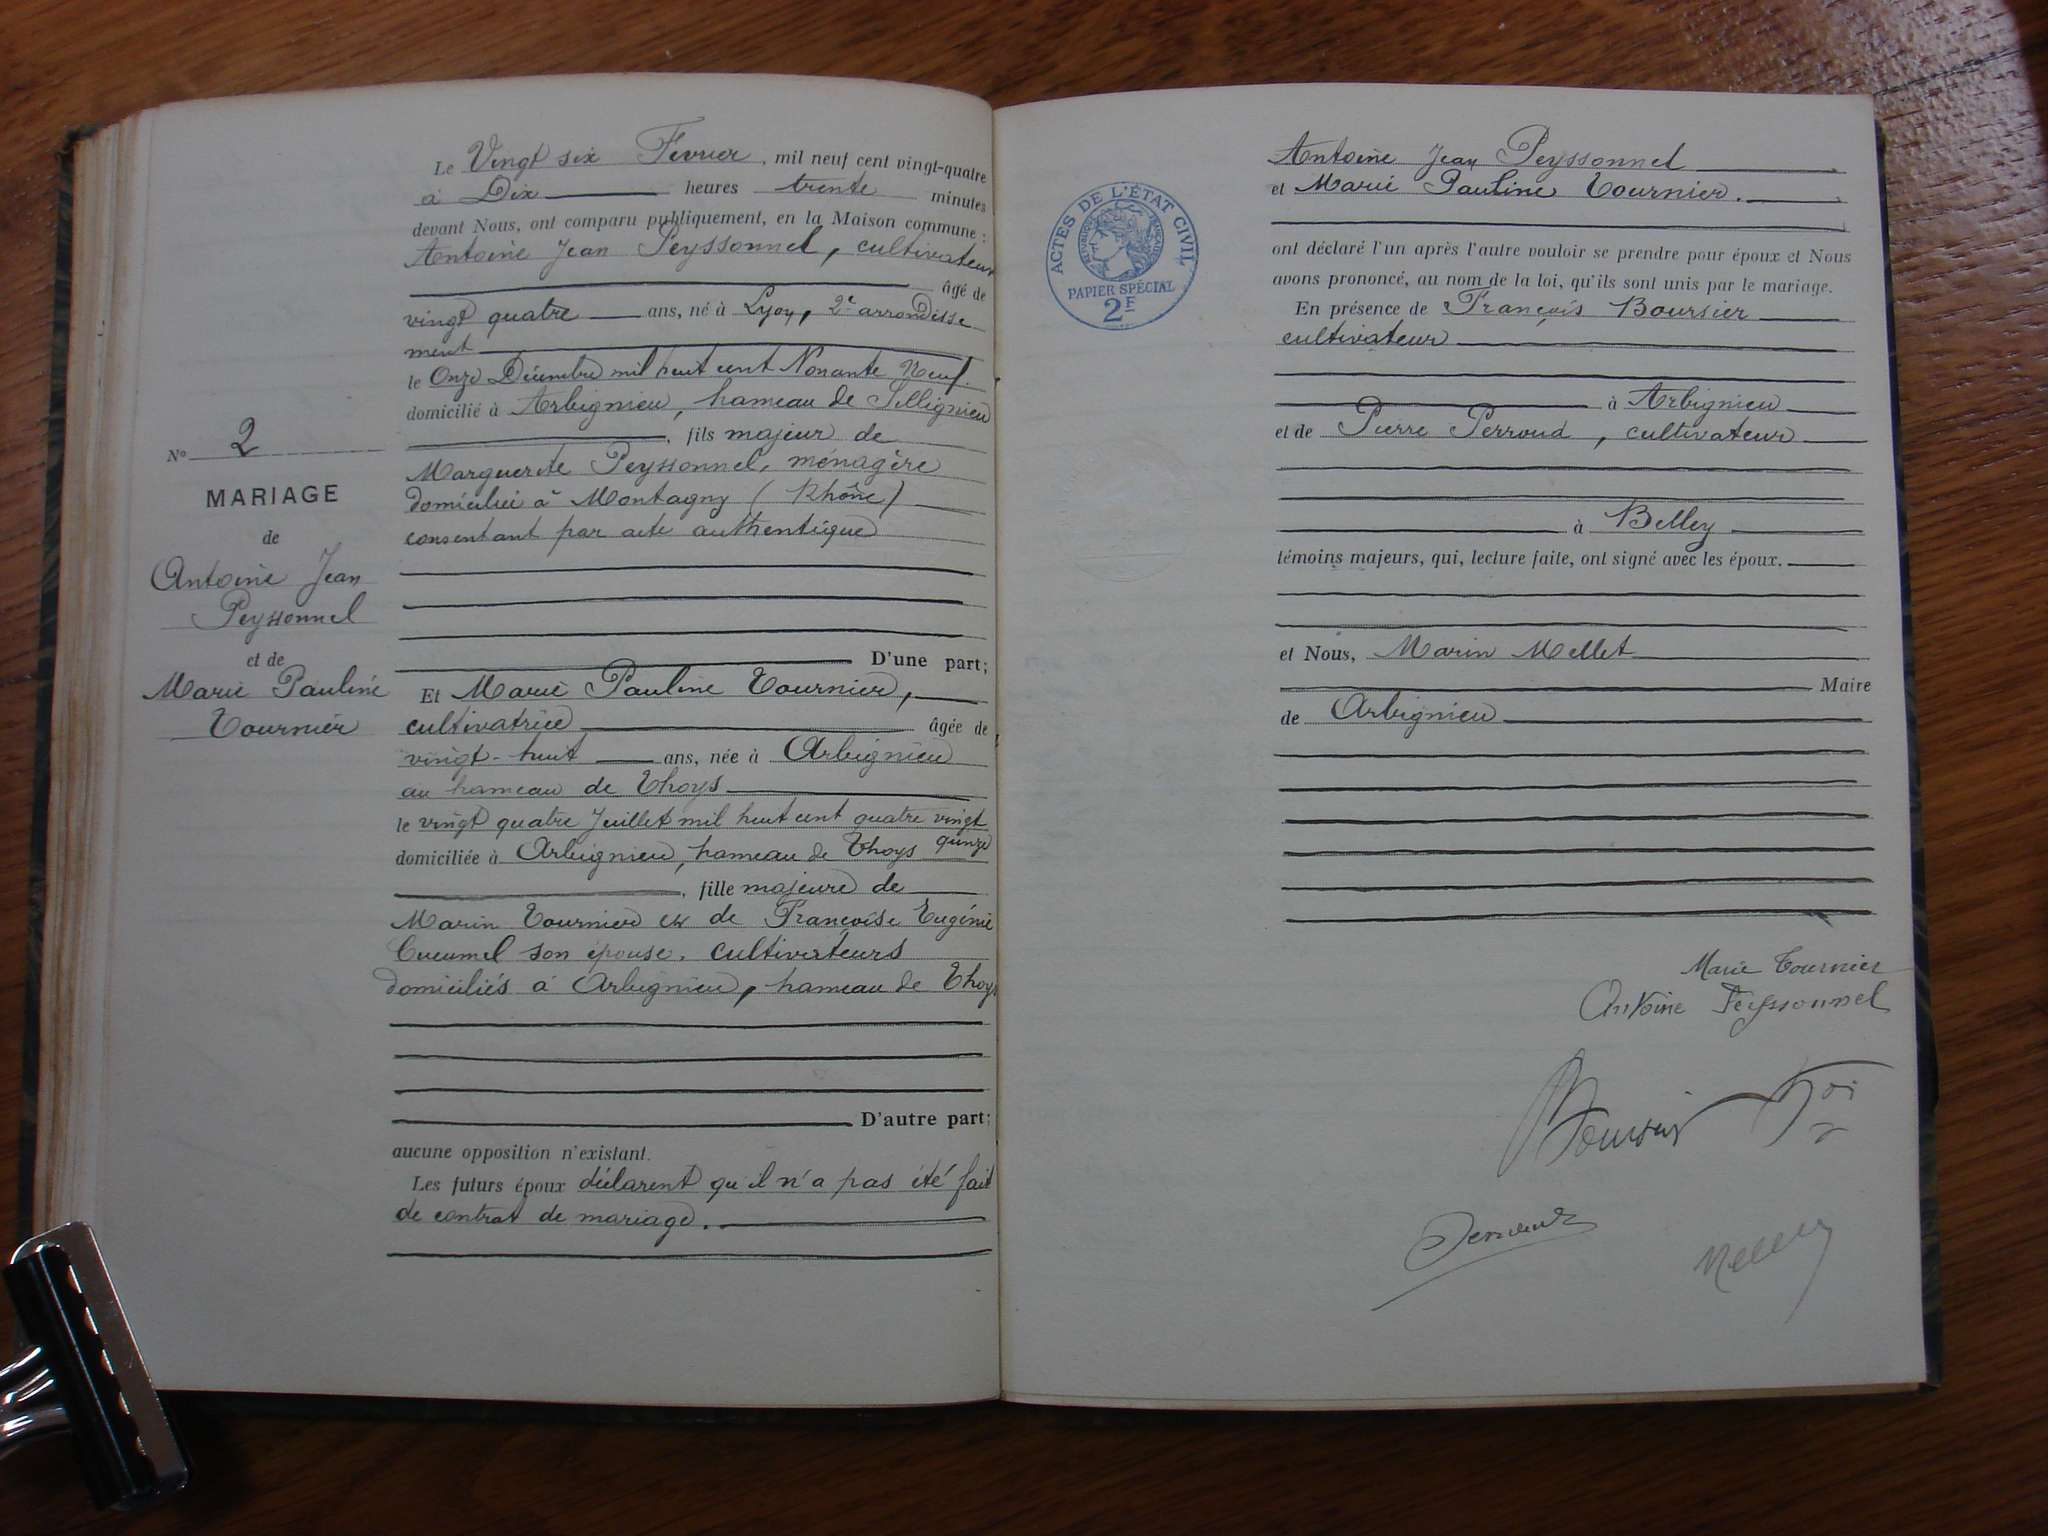 N° 2
MARIAGE
de
Antoine Jean
Peyssonnel
et de
Marie Pauline
Tournier
Le Vingt six Février, mil neuf cent vingt-quatre
à Dix heures trente minutes
devant Nous, ont comparu publiquement, en la Maison commune :
Antoine Jean Peyssonnel, cultivateur
âgé de
vingt quatre ans, né à Lyon, 2e arrondisse
ment
le Onze Décembre mil huit cent Nonante Neuf.
domicilié à Arbignieu, hameau de Sillignieu
, fils majeur de
Marguerite Peyssonnel, ménagère
domicilié à Montagny (Rhône)
consentant par acte authentique
D'une part;
Et Marie Pauline Tournier,
cultivatrice âgée de
vingt-huit ans, née à Arbignieu
au hameau de Thoys
le vingt quatre Juillet mil huit cent quatre vingt
quinze
domiciliée à Arbignieu, hameau de Thoys
, fille majeure de
Marin Tournier et de Françoise Eugénie
Cucumel son épouse, cultivateurs
domiciliés à Arbignieu, hameau de Thoys
D'autre part;
aucune opposition n'existant.
Les futurs époux déclarent qu'il n'a pas été fait
de contrat de mariage.
ACTES DE L'ÉTAT CIVIL
RÉPUBLIQUE FRANÇAISE
PAPIER SPÉCIAL
2F
Antoine Jean Peyssonnel
et Marie Pauline Tournier.
ont déclaré l'un après l'autre vouloir se prendre pour époux et Nous
avons prononcé, au nom de la loi, qu'ils sont unis par le mariage.
En présence de François Boursier
cultivateur
à Arbignieu
et de Pierre Perroud, cultivateur
à Belley
témoins majeurs, qui, lecture faite, ont signé avec les époux.
et Nous, Marin Mellet
Maire
de Arbignieu
Marie Tournier
Antoine Peyssonnel
Boursier